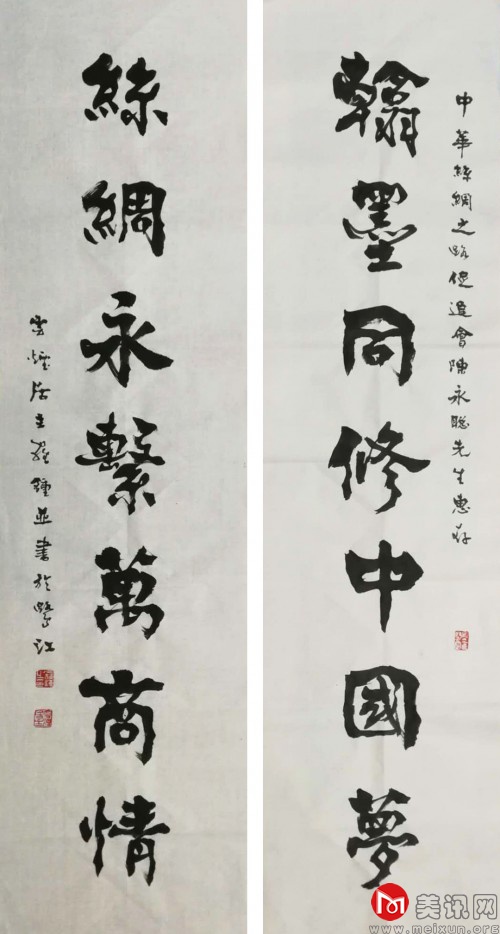 中華絲綢之路促進會陳永聰先生惠存
翰墨同修中國夢
絲綢永繫萬商情
雲煙居主羅鍾並書於鷺江
美讯网
www.meixun.org